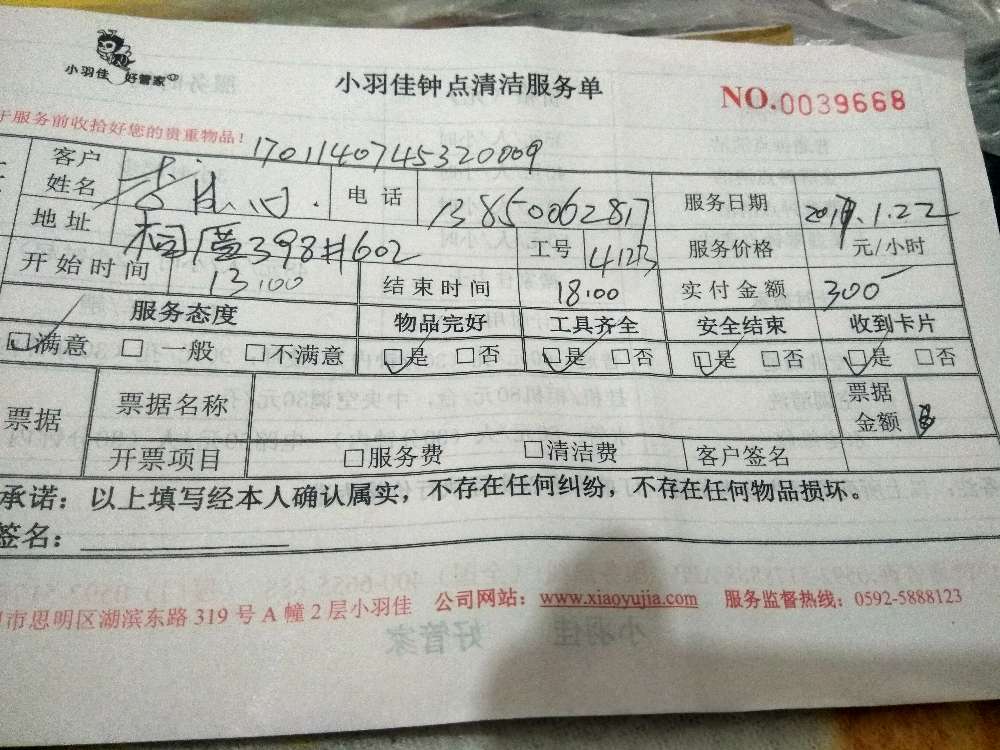 小羽佳 好管家
小羽佳钟点清洁服务单
NO.0039668
于服务前收拾好您的贵重物品!
1701140745320009
客户姓名 电话 13850062817 服务日期 .1.22
地址 398#602 工号 服务价格 元/小时
开始时间 13:00 结束时间 18:00 实付金额 300
服务态度 物品完好 工具齐全 安全结束 收到卡片
☑满意 □一般 □不满意 ☑是 □否 ☑是 □否 ☑是 □否 ☑是 □否
票据 票据名称 票据金额
开票项目 □服务费 □清洁费 客户签名
承诺：以上填写经本人确认属实，不存在任何纠纷，不存在任何物品损坏。
签名：
市思明区湖滨东路 319 号 A 幢 2 层小羽佳 公司网站：www.xiaoyujia.com 服务监督热线：0592-5888123